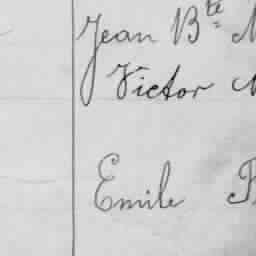 Jean Bte
Victor
Emile